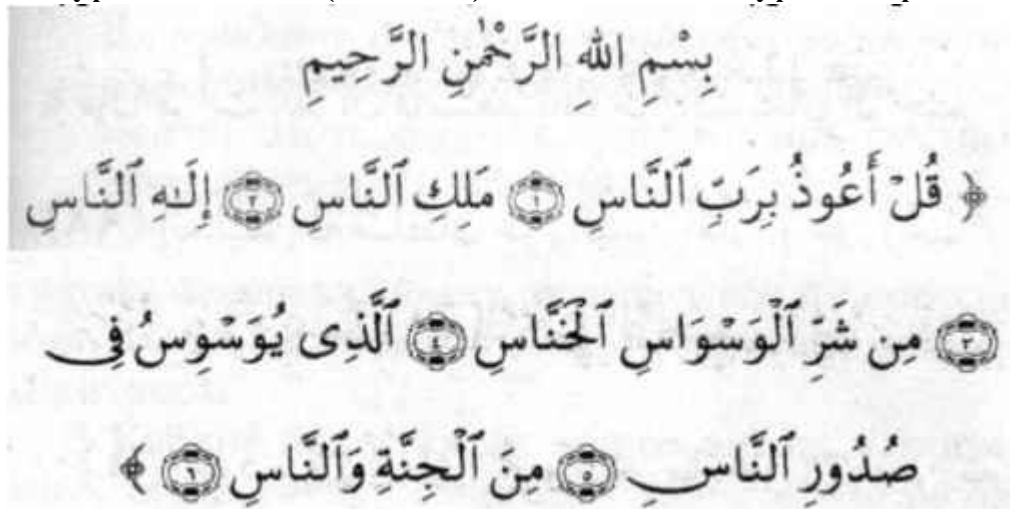 بِسْمِ اللهِ الرَّحْمٰنِ الرَّحِيمِ
﴿ قُلْ أَعُوذُ بِرَبِّ ٱلنَّاسِ ١ مَلِكِ ٱلنَّاسِ ٢ إِلَـٰهِ ٱلنَّاسِ
٣ مِن شَرِّ ٱلْوَسْوَاسِ ٱلْخَنَّاسِ ٤ ٱلَّذِى يُوَسْوِسُ فِى
صُدُورِ ٱلنَّاسِ ٥ مِنَ ٱلْجِنَّةِ وَٱلنَّاسِ ٦ ﴾